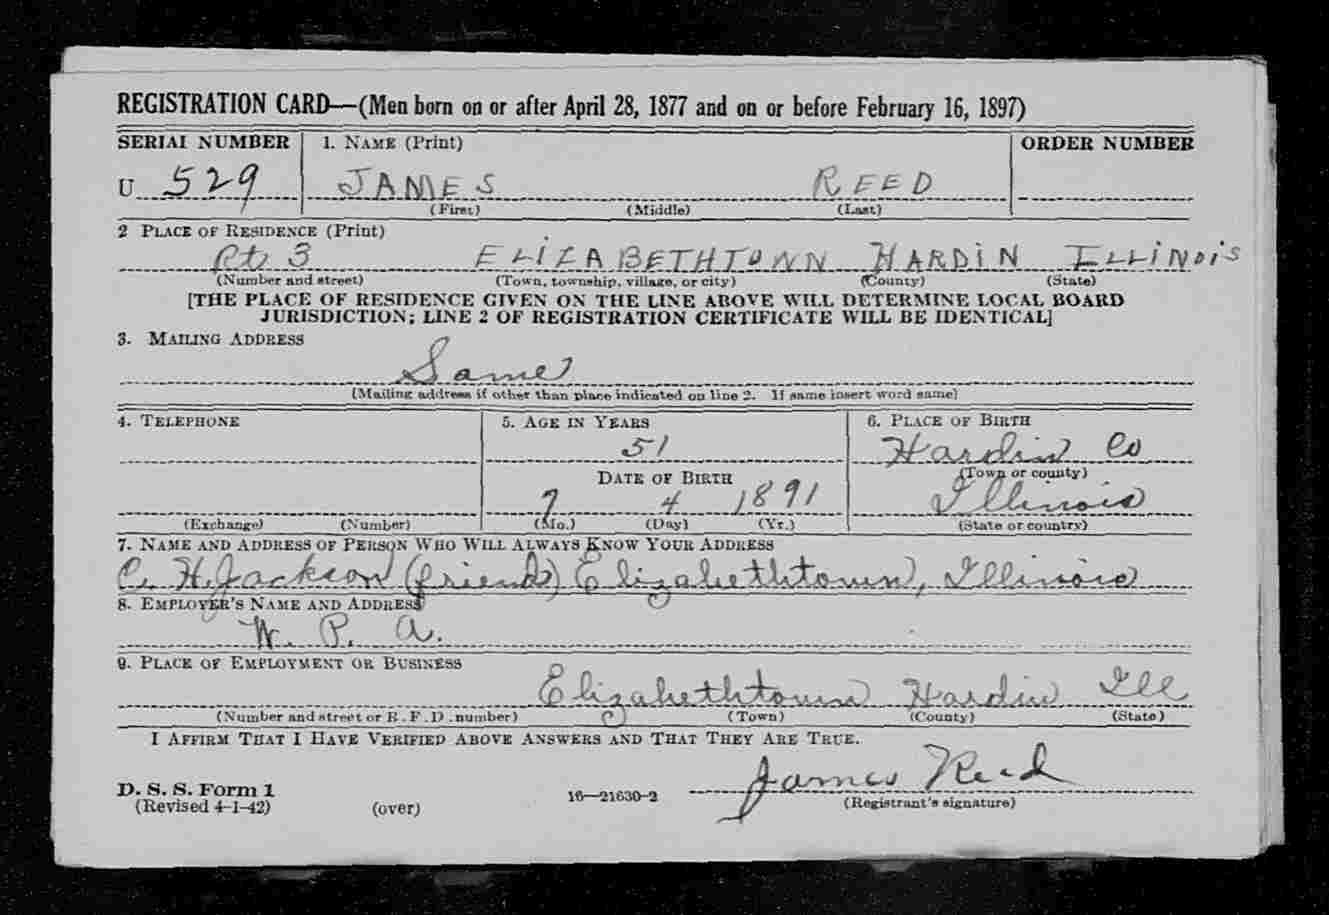 REGISTRATION CARD—(Men born on or after April 28, 1877 and on or before February 16, 1897)
SERIAL NUMBER 1. NAME (Print) ORDER NUMBER
U 529 JAMES REED
(First) (Middle) (Last)
2 PLACE OF RESIDENCE (Print)
Rt 3 ELIZABETHTOWN HARDIN ILLINOIS
(Number and street) (Town, township, village, or city) (County) (State)
[THE PLACE OF RESIDENCE GIVEN ON THE LINE ABOVE WILL DETERMINE LOCAL BOARD
JURISDICTION; LINE 2 OF REGISTRATION CERTIFICATE WILL BE IDENTICAL]
3. MAILING ADDRESS
Same
(Mailing address if other than place indicated on line 2. If same insert word same)
4. TELEPHONE 5. AGE IN YEARS 6. PLACE OF BIRTH
51 Hardin Co
DATE OF BIRTH (Town or county)
7 4 1891 Illinois
(Exchange) (Number) (Mo.) (Day) (Yr.) (State or country)
7. NAME AND ADDRESS OF PERSON WHO WILL ALWAYS KNOW YOUR ADDRESS
C. H. Jackson (friend) Elizabethtown, Illinois
8. EMPLOYER'S NAME AND ADDRESS
W. P. A.
9. PLACE OF EMPLOYMENT OR BUSINESS
Elizabethtown Hardin Ill
(Number and street or R. F. D. number) (Town) (County) (State)
I AFFIRM THAT I HAVE VERIFIED ABOVE ANSWERS AND THAT THEY ARE TRUE.
James Reed
D. S. S. Form 1 16—21630-2 (Registrant's signature)
(Revised 4-1-42) (over)